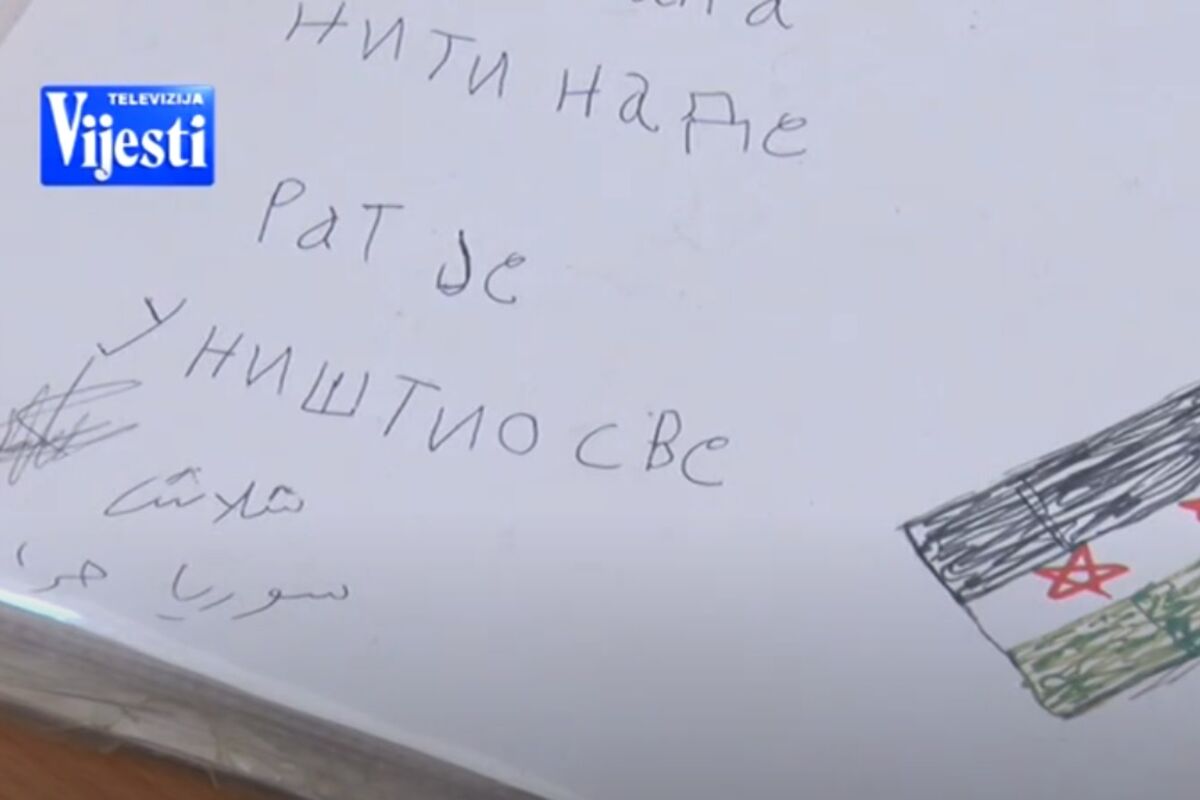 TELEVIZIJA
Vijesti
нити наде
Рат је
Уништио све
سوريا